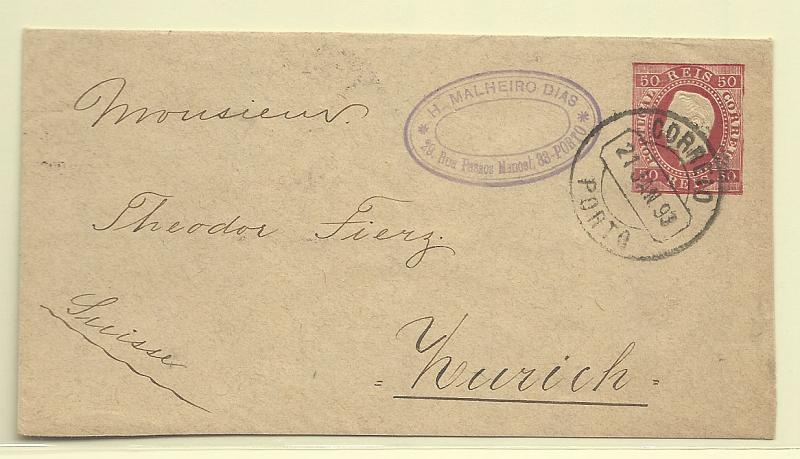 Monsieur
Theodor Fierz
Zurich
Suisse
* H. MALHEIRO DIAS *
29, Rua Passos Manoel, 33-PORTO
50 REIS 50
PORTUGAL
CORREIO
50 REIS 50
21 JAN 93
PORTO